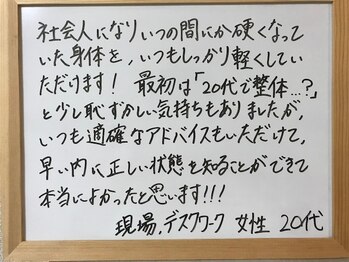 社会人になりいつの間にか硬くなって
いた身体を，いつもしっかり軽くしてい
ただけます！ 最初は「20代で整体…？」
と少し恥ずかしい気持ちもありましたが，
いつも適確なアドバイスもいただけて，
早い内に正しい状態を知ることができて
本当によかったと思います!!!
現場，デスクワーク 女性 20代